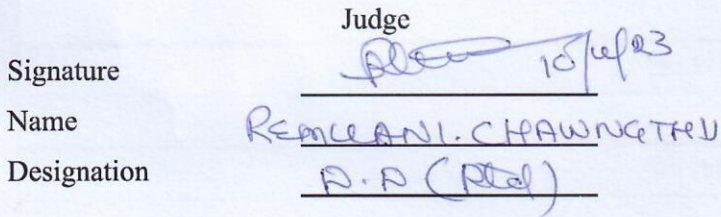 Judge
Signature 10/11/23
Name REMLLANI. CHAWNGTHU
Designation D.D (Rtd)